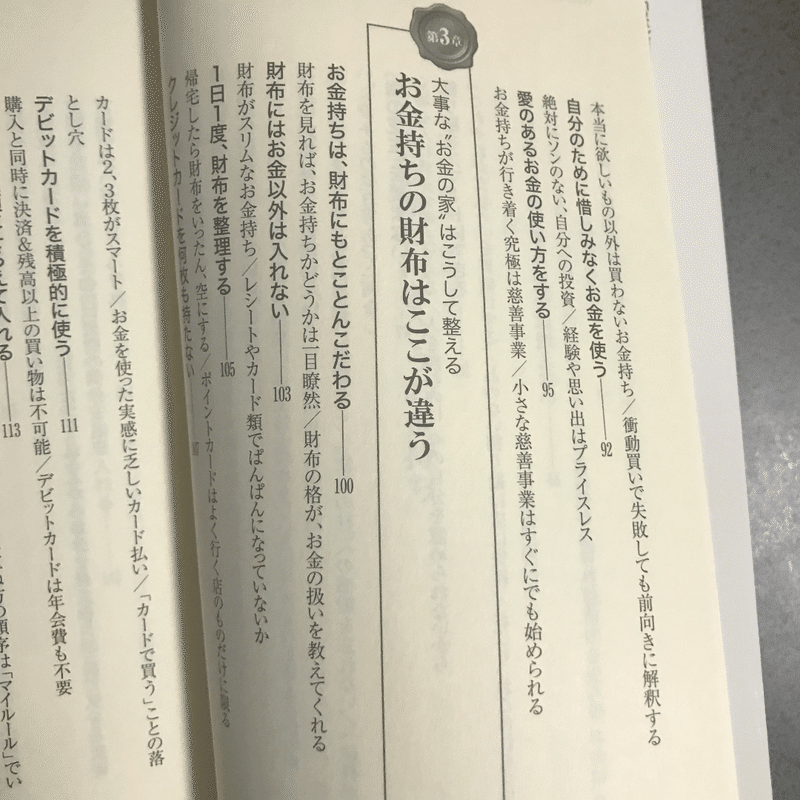 本当に欲しいもの以外は買わないお金持ち／衝動買いで失敗しても前向きに解釈する
自分のために惜しみなくお金を使う――92
絶対にソンのない、自分への投資／経験や思い出はプライスレス
愛のあるお金の使い方をする――95
お金持ちが行き着く究極は慈善事業／小さな慈善事業はすぐにでも始められる
第3章
大事な〝お金の家〟はこうして整える
お金持ちの財布はここが違う
お金持ちは、財布にもとことんこだわる――100
財布を見れば、お金持ちかどうかは一目瞭然／財布の格が、お金の扱いを教えてくれる
財布にはお金以外は入れない――103
財布がスリムなお金持ち／レシートやカード類でぱんぱんになっていないか
1日1度、財布を整理する――105
帰宅したら財布をいったん、空にする／ポイントカードはよく行く店のものだけに限る
クレジットカードを何枚も持たない――
カードは2、3枚がスマート／お金を使った実感に乏しいカード払い／「カードで買う」ことの落
とし穴
デビットカードを積極的に使う――111
購入と同時に決済＆残高以上の買い物は不可能／デビットカードは年会費も不要
えて入れる――113
の順序は「マイルール」でい